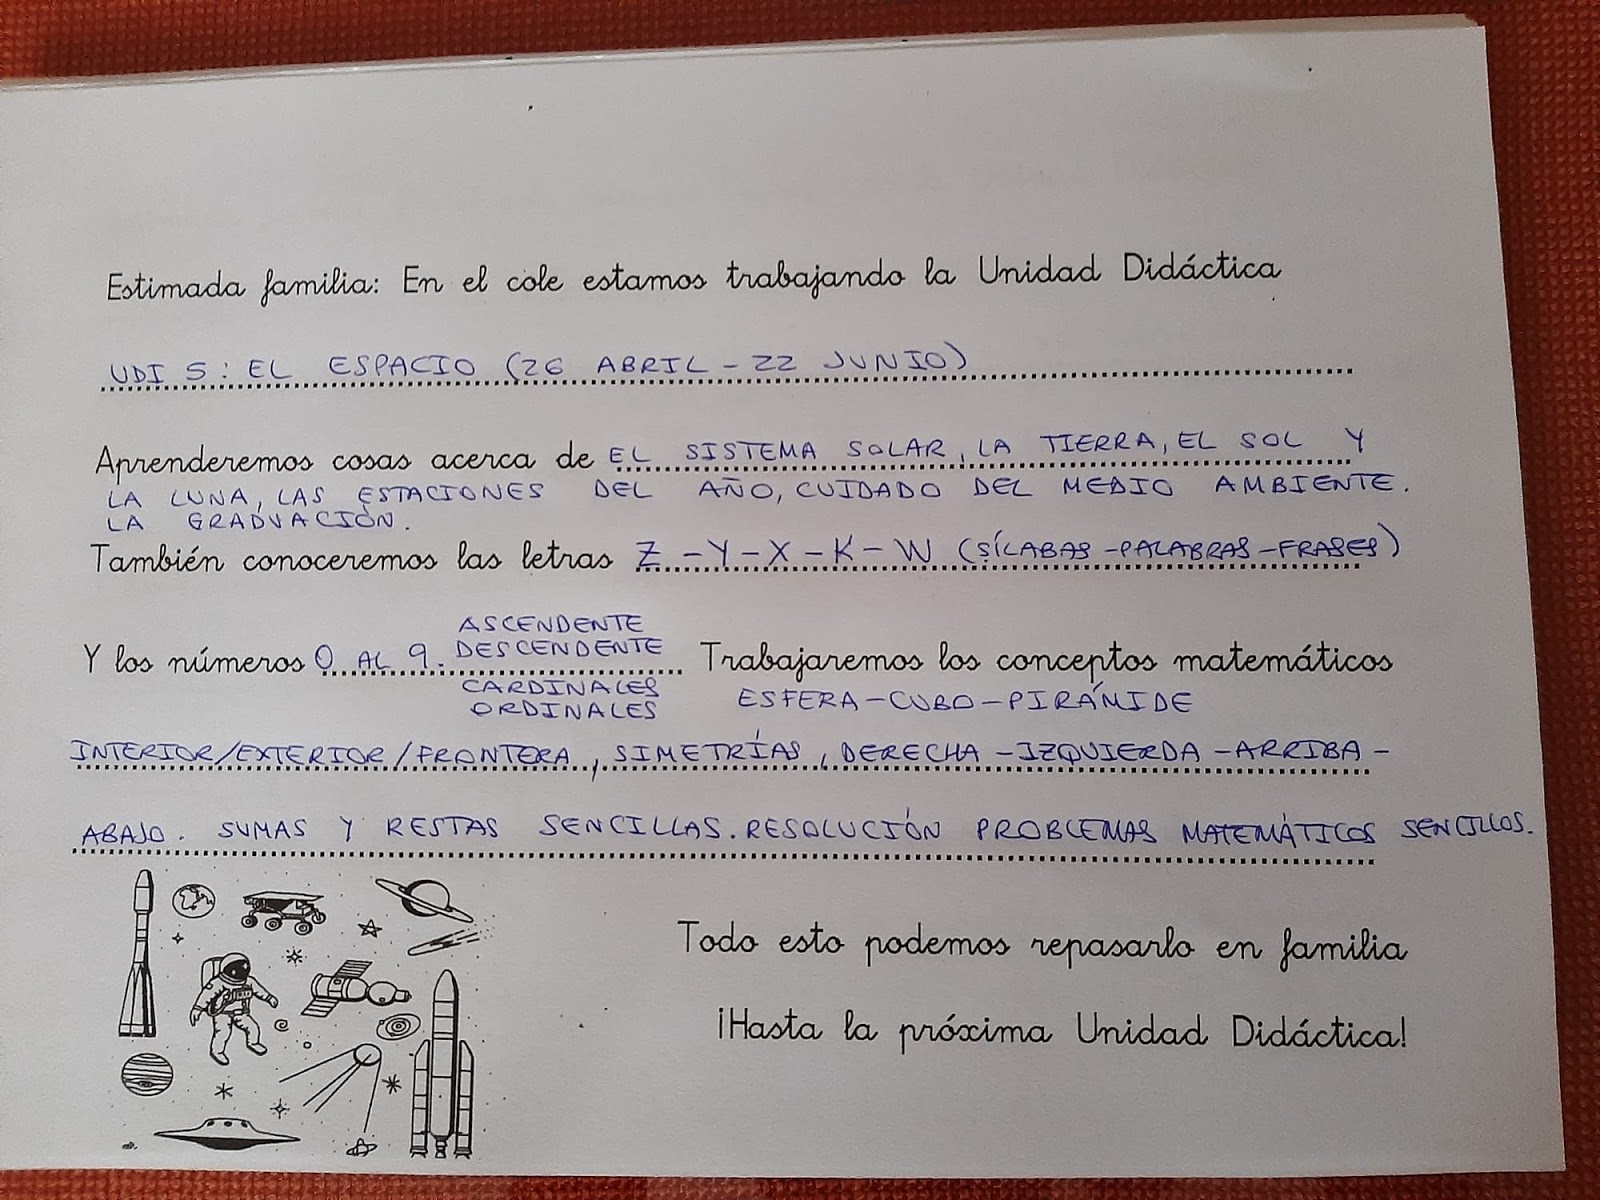 Estimada familia: En el cole estamos trabajando la Unidad Didáctica
UDI 5: EL ESPACIO (26 ABRIL - 22 JUNIO)
Aprenderemos cosas acerca de EL SISTEMA SOLAR, LA TIERRA, EL SOL Y
LA LUNA, LAS ESTACIONES DEL AÑO, CUIDADO DEL MEDIO AMBIENTE.
LA GRADUACIÓN.
También conoceremos las letras Z - Y - X - K - W (SÍLABAS - PALABRAS - FRASES)
ASCENDENTE
Y los números 0 AL 9. DESCENDENTE Trabajaremos los conceptos matemáticos
CARDINALES ESFERA - CUBO - PIRÁMIDE
ORDINALES
INTERIOR/EXTERIOR/FRONTERA, SIMETRÍAS, DERECHA - IZQUIERDA - ARRIBA -
ABAJO. SUMAS Y RESTAS SENCILLAS. RESOLUCIÓN PROBLEMAS MATEMÁTICOS SENCILLOS.
Todo esto podemos repasarlo en familia
¡Hasta la próxima Unidad Didáctica!